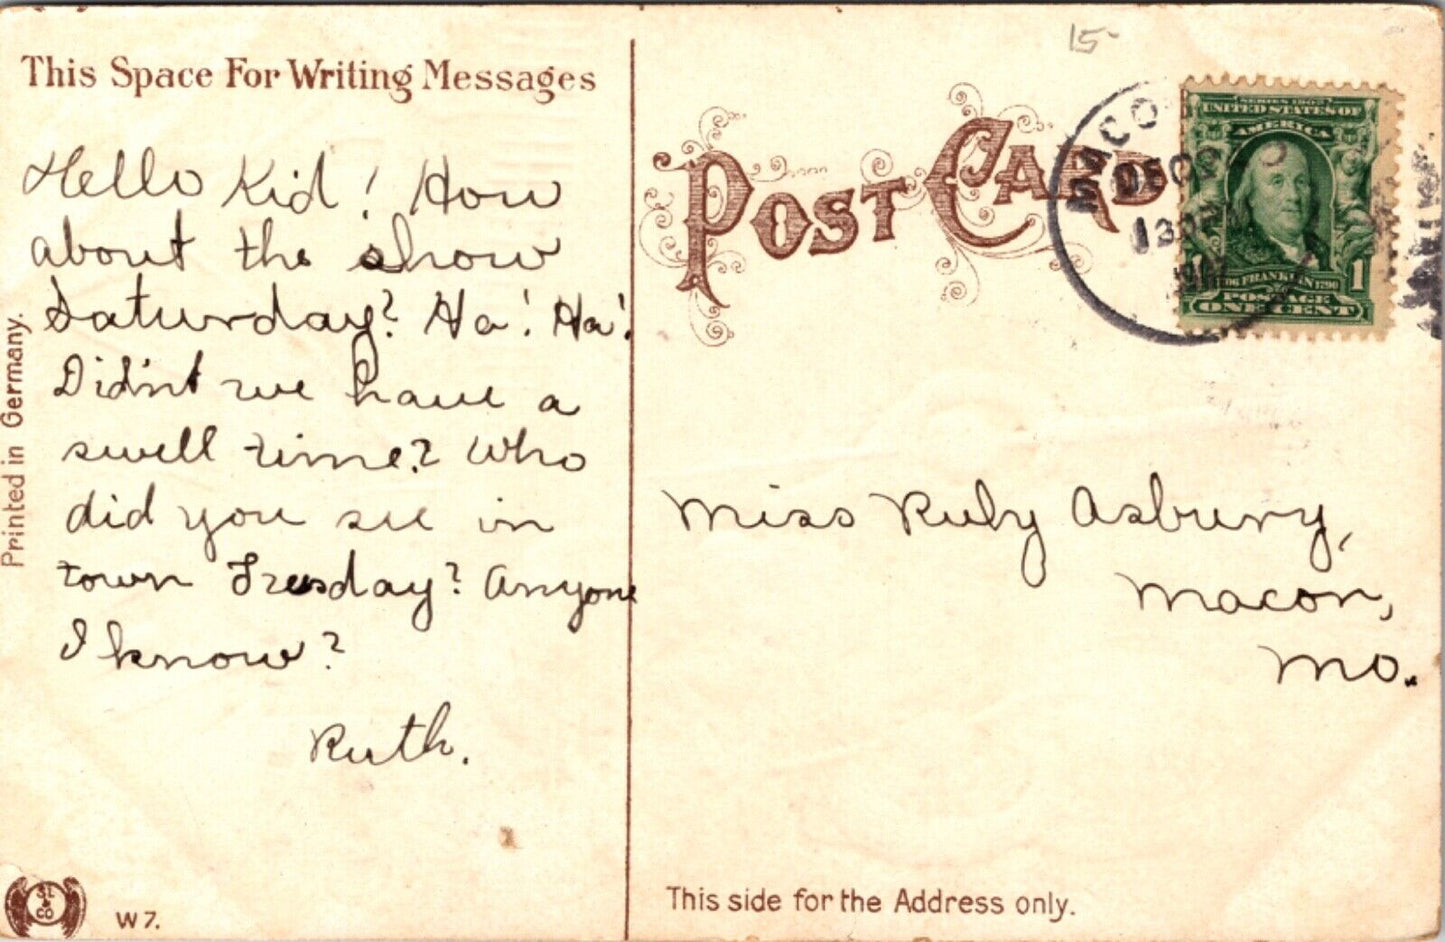 15-
This Space For Writing Messages
Hello Kid! How
about the show
Saturday? Ha! Ha!
Didn't we have a
swell time? Who
did you see in
town Tuesday? Anyone
I know?
Ruth.
Printed in Germany.
W 7.
POST CARD
MACO
DEC
SERIES 1902
UNITED STATES OF
AMERICA
FRANKLIN 1790
POSTAGE
1 1
ONE CENT
Miss Ruby Asbury,
Macon,
Mo.
This side for the Address only.